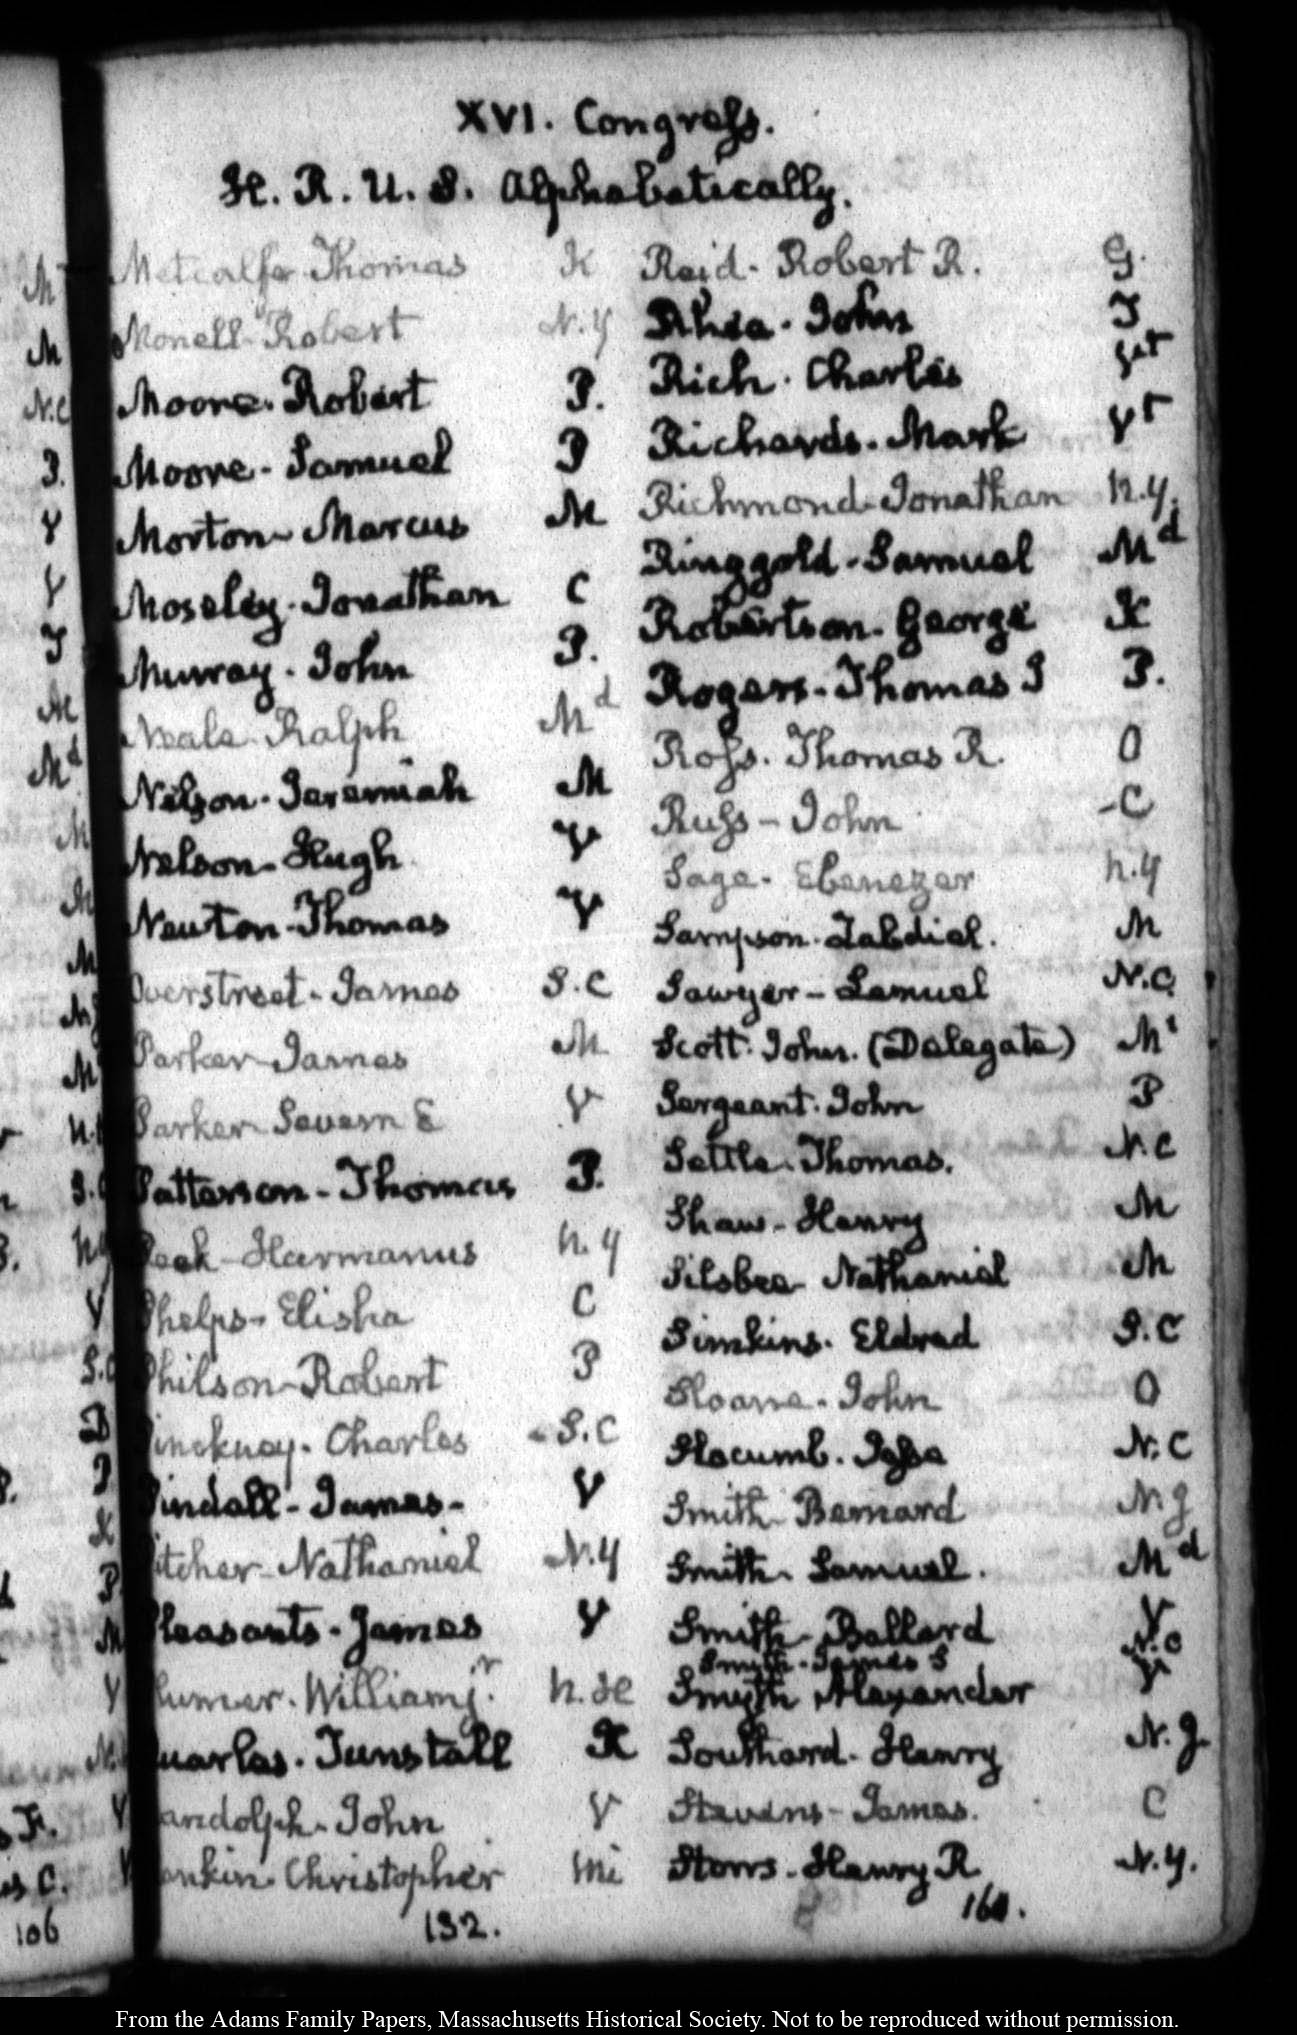 XVI. Congress.
H. R. U. S. Alphabetically.
Metcalfe Thomas K
Monell Robert N.Y
Moore. Robert P.
Moore - Samuel P
Morton - Marcus M
Moseley. Jonathan C
Murray. John P.
Neale Ralph Md
Nelson. Jeremiah M
Nelson - Hugh V
Newton - Thomas V
Overstreet. James S.C
Parker James M
Parker Severn E V
Patterson - Thomas P.
Peek - Harmanus N.Y
Phelps - Elisha C
Philson - Robert P
Pinckney. Charles - S.C
Pindall - James - V
Pitcher - Nathaniel N.Y
Pleasants - James V
Plumer. William jr. N.H
Quarles. Tunstall K
Randolph - John V
Rankin. Christopher Mi
132.
Reid. Robert R. G.
Rhea. John T
Rich. Charles Vt
Richards. Mark Vt
Richmond Jonathan N.Y.
Ringgold. Samuel Md
Robertson. George K
Rogers - Thomas J P.
Ross. Thomas R. O
Russ - John - C
Sage. Ebenezer N.Y
Sampson. Zabdiel. M
Sawyer - Lemuel N.C.
Scott. John. (Delegate) Mi
Sergeant. John P
Settle. Thomas. N.C
Shaw - Henry M
Silsbee - Nathaniel M
Simkins. Eldred S.C
Sloane. John O
Slocumb. Jesse N.C
Smith Bernard N.J
Smith. Samuel. Md
Smith - Ballard V
Smith - James S N.C
Smyth Alexander V
Southard. Henry N.J.
Stevens - James. C
Storrs - Henry R N.Y.
160.
M
M
N.C
P.
V
V
T
M
Md
M
M
M
V
S.C
D
P
K
P
M
V
V
s F.
is C.
106
From the Adams Family Papers, Massachusetts Historical Society. Not to be reproduced without permission.